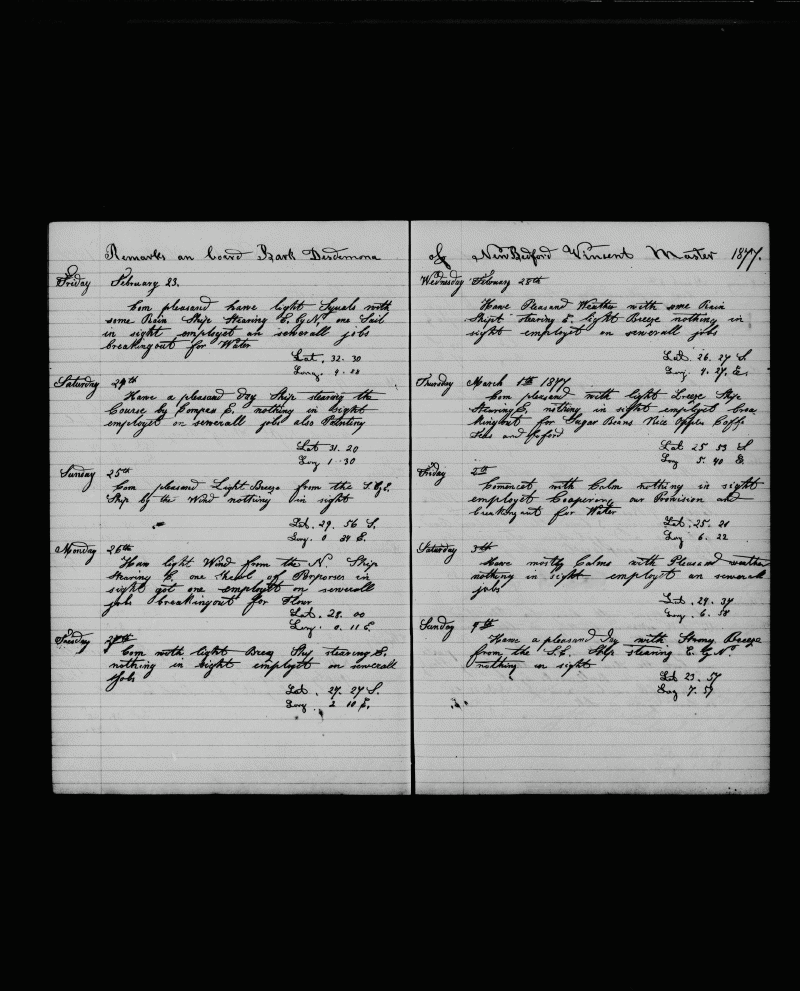 Remarks on board Bark Desdemona
Friday February 23.
Com pleasand have light Squals with
some Rain Ship stearing E. by N, one Sail
in sight employet an sewerall jobs
breakingout for Water
Lat. 32. 30
Long. 4.
Saturday 24th
Have a pleasand day Ship stearing the
Course by Compas E. nothing in Sight
employet on sewerall jobs also Painting
Lat 31. 20
Long 1. 30
Sunday 25th
Com pleasand Light Breeze from the S. by E.
Ship by the Wind nothing in sight
Lat. 29. 56 S.
Long. 0 34 E.
Monday 26th
Ham light Wind from the N. Ship
stearing E. one shool of Porporses in
sight got one employet on sewerall
jobs breakingout for Flour
Lat. 28. 00
Long. 0. 11 E.
Tuesday 27th
Com with light Breez Ship stearing E.
nothing in sight employet on sewerall
jobs
Lat. 27. 27 S.
Long. 2 10 E.
of New Bedford Wincent Master 1877.
Wednesday February 28th
Have Pleasand Weather with some Rain
Shipt stearing E. light Breeze nothing in
sight employet on sewerall jobs
Lat. 26. 27 S
Long. 4. 27. E.
Thursday March 1th 1877
Com pleasand with light breeze Ship
Stearing E, nothing in sight employet brea
kingout for Sugar Beans Rice Apples Coffe
Teas and
Lat 25 53 S
Long 5. 40 E
Friday 2th
Comencet with Calm nothing in sight
employet Cooperong our Provision and
breakingout for Water
Lat. 25. 21
Long 6. 22
Saturday 3th
Have mostly Calms with Pleasand weather
nothing in sight employet an sewerall
jobs
Lat. 24. 34
Long. 6. 58
Sunday 4th
Have a pleasand day with Strong Breeze
from the S.E. Ship stearing E. by N.
nothing in sight
Lat 23. 57
Long 7. 57